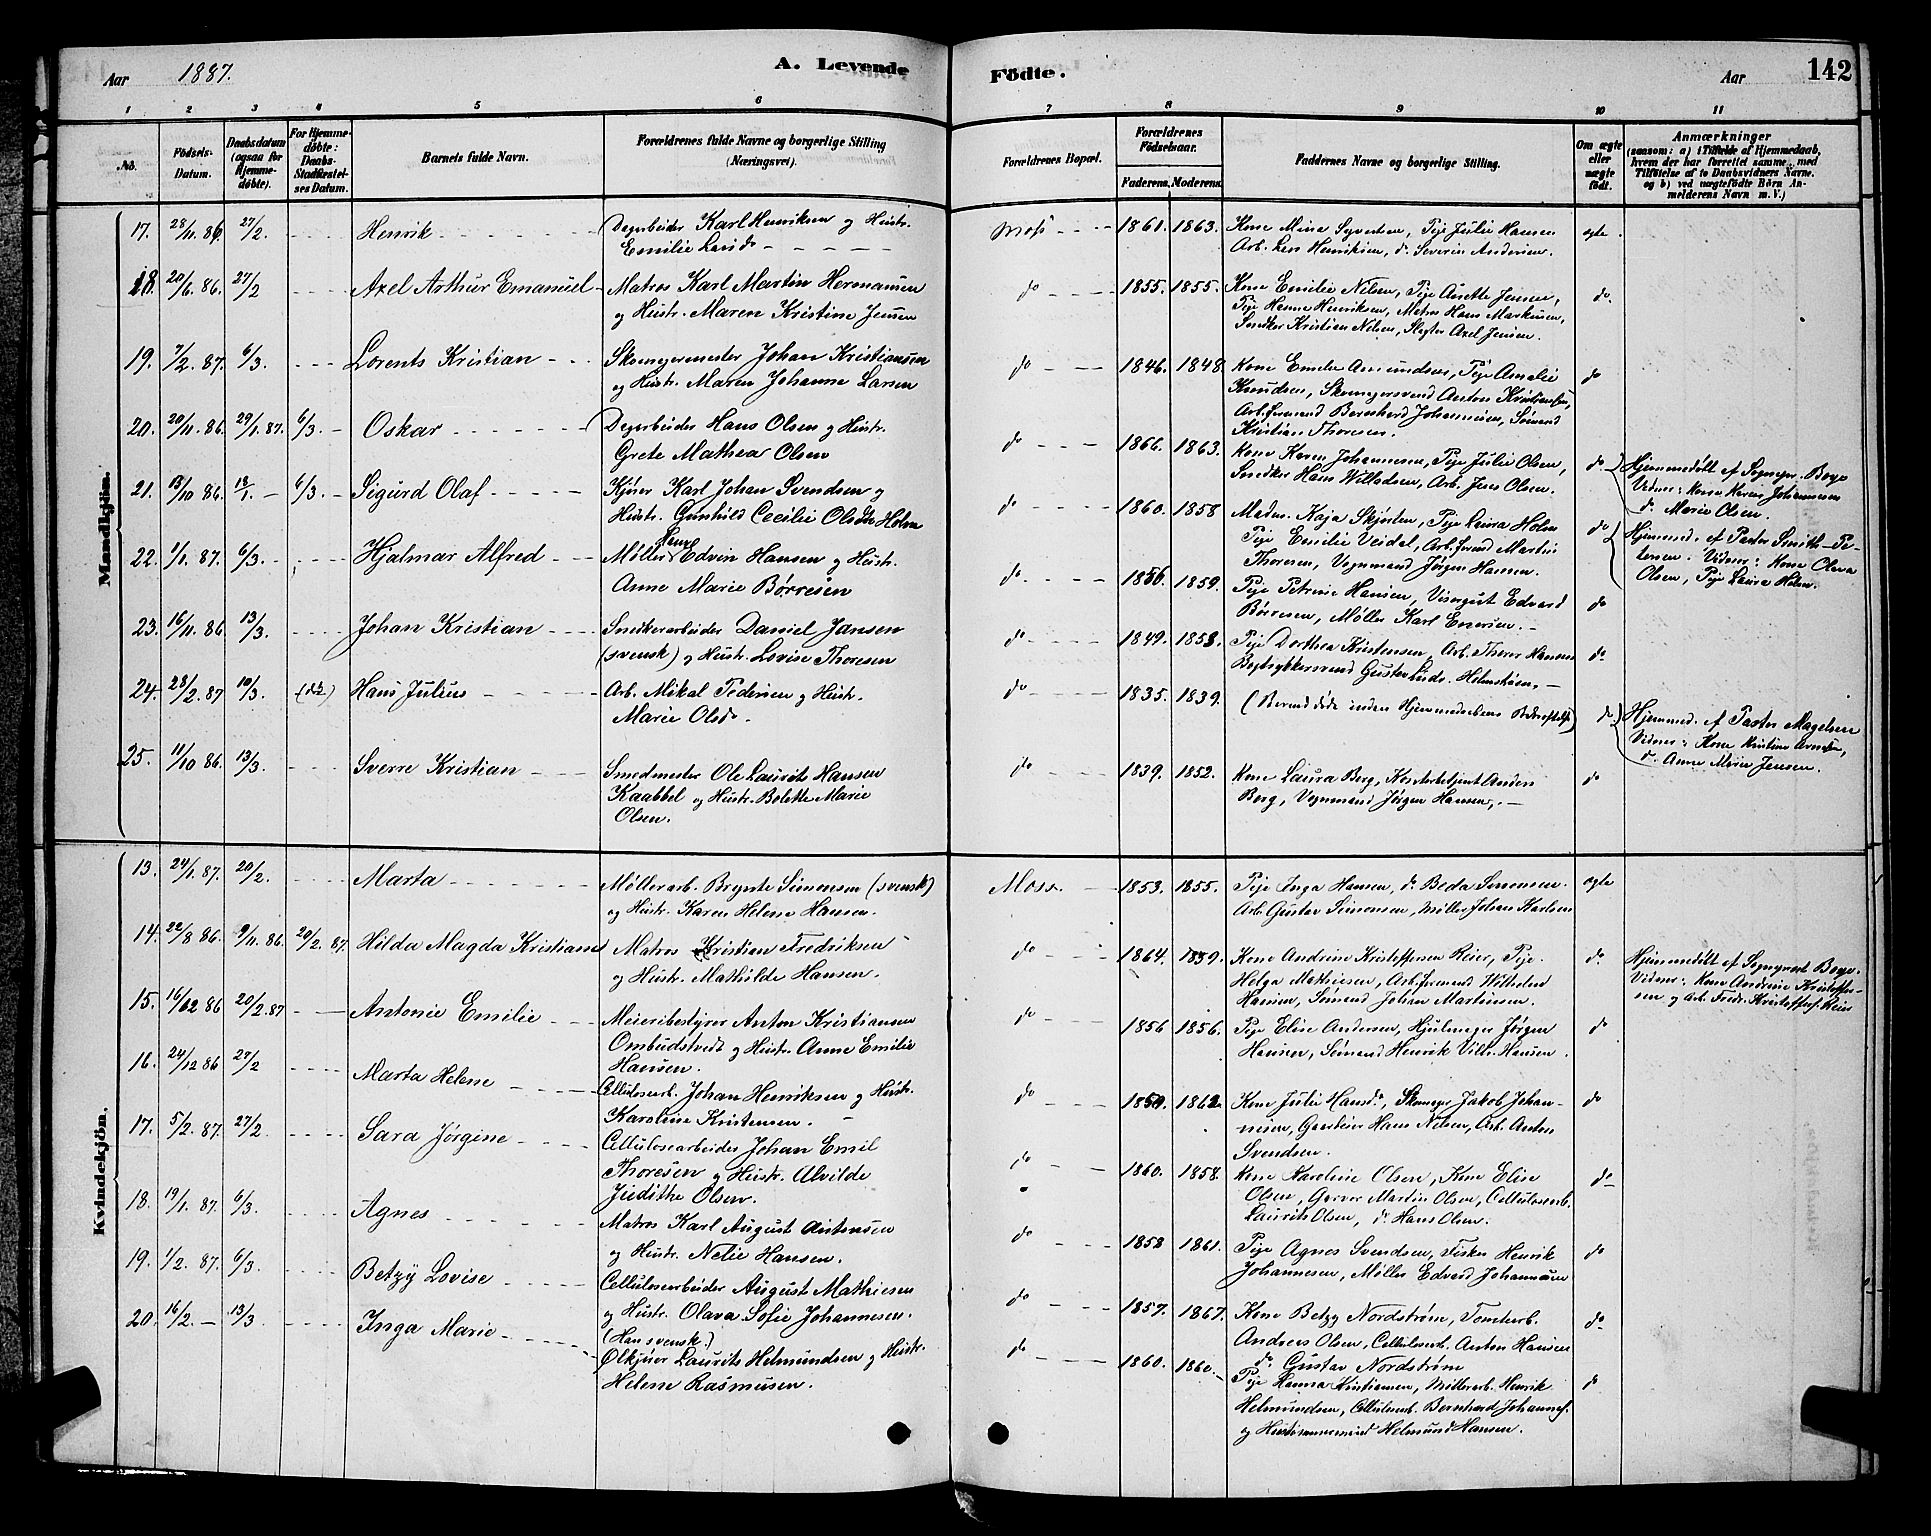 Aar 1887. A. Levende Födte. Aar 142
1 2 3 4 5 6 7 8 9 10 11
No.
Födsels-Datum.
Daabsdatum (ogsaa for Hjemme-døbte).
For Hjemme-döbte: Daabs-Stadfæstel-ses Datum.
Barnets fulde Navn.
Forældrenes fulde Navne og borgerlige Stilling (Næringsvei).
Forældrenes Bopæl.
Forældrenes Födselsaar.
Faderens. Moderens.
Faddernes Navne og borgerlige Stilling.
Om ægte eller uægte født.
Anmærkninger
(saasom: a) i Tilfælde af Hjemmedaab,
hvem der har forrettet samme, med
Tilföielse af to Daabsvidners Navne.
og b) ved uægtefödte Börn An-
melderens Navn m. V.)
Mandkjön.
17. 28/11. 86. 27/2. Henrik
Dagarbeider Karl Henriksen og Hustr.
Emilie Larsd.
Moss 1861. 1863.
Kone Mina Syvertsen, Pige Julie Hansen
Arb. Lars Henriksen, do Severin Andersen.
ægte.
18. 20/6. 86. 27/2 Axel Arthur Emanuel
Matros Karl Martin Hermansen
og Hustr. Maren Kristine Jensen
do 1855. 1855.
Kone Emilie Nilsen, Pige Anette Jensen,
Pige Hanna Henriksen, Matros Hans Markusen,
Snedker Kristian Nilsen, Slagter Axel Jensen.
do.
19. 7/2. 87. 6/3. Lorents Kristian
Skomagermester Johan Kristiansen
og Hustr. Maren Johanne Larsen
do 1846. 1848
Kone Emilie Amundsen, Pige Amalie
Knudsen, Skomagersvend Anton Kristiansen,
Arb.formand Bernhard Johannesen, Sömand
Kristian Thoresen.
do
20. 20/11. 86. 29/1. 87. 6/3. Oskar
Dagarbeider Hans Olsen og Hustr.
Grete Mathea Olsen
do 1866. 1863.
Kone Karen Johannesen, Pige Julie Olsen,
Snedker Hans Willadsen, Arb. Jens Olsen.
do
Hjemmedöbt af Sogneprs. Borge
Vidner: Kone Karen Johannesen
do Marie Olsen.
21. 13/10 86. 18/1. 6/3. Sigurd Olaf
Kjører Karl Johan Svendsen og
Hustr. Gunhild Cecilie Olsdtr Holm
do 1860. 1858
Madm. Kaja Skjørten, Pige Laura Holm
Pige Emilie Veidel, Arb.formand Martin
Thoresen, Vognmand Jørgen Hansen.
do
Hjemmed. af Pastor Smith-Pe-
tersen. Vidner: Kone Olava
Olsen, Pige Laura Holm.
22. 1/1. 87. 6/3. Hjalmar Alfred
Møller Edvin Hansen og Hustr.
Anne Marie Børresen
do 1856. 1859.
Pige Petrine Hansen, Visergut Edvard
Børresen, Møller Karl Enersen.
do
23. 16/11. 86. 13/3. Johan Kristian
Snedkerarbeider Daniel Jansen
(svensk) og Hustr. Lovise Thoresen
do 1849. 1858.
Pige Dorthea Kristensen, Arb. Thorer Hansen
Bogtrykkersvend Gustav Ludv. Holmstrøm.
do
24. 28/2. 87 10/3. Hans Julius
Arb. Mikal Pedersen og Hustr.
Marie Olsdr.
do 1835. 1839.
(Barnet døde inden Hjemmedaabens Bekræftelse)
do
Hjemmed. af Pastor Magelsen
Vidner: Kone Kristine Arnesen,
do Anne Marie Jensen.
25. 11/10 86. 13/3. Sverre Kristian
Smedmester Ole Laurits Hansen
Kaabbel og Hustr. Bolette Marie
Olsen.
do 1839. 1852.
Kone Laura Berg, Kontorbetjent Anders
Berg, Vognmand Jørgen Hansen,
do
Kvindekjön.
13. 24/1. 87. 20/2. Marta
Møllerarb. Brynte Simonsen (svensk)
og Hustr. Karen Helene Hansen.
Moss. 1853. 1855.
Pige Inga Hansen, do Beda Simonsen.
Arb. Gustav Simonsen, Møller Johan Karlsen
ægte
14. 22/8 86. 9/11. 86. 20/2. 87. Hilda Magda Kristiane
Matros Kristian Fredriksen
og Hustr. Mathilde Hansen.
do 1864. 1859.
Kone Andrine Kristoffersen Reier, Pige
Helga Mathiesen, Arb.formand Wilhelm
Hansen, Sømand Johan Martinsen.
do
Hjemmedöbt af Sogneprest Borge.
Vidner: Kone Andrine Kristoffer-
sen og Arb. Fredr. Kristoffers. Reier
15. 16/12 86 20/2. 87 Antonie Emilie
Meieribestyrer Anton Kristiansen
Ombudstvedt og Hustr. Anne Emilie
Hansen.
do 1856 1856.
Pige Elise Andersen, Hjulmager Jørgen
Hansen, Sømand Henrik Vilh. Hansen.
do
16. 24/12 86 27/2 Marta Helene
Cellulosearb. Johan Henriksen og Hustr.
Karoline Kristensen.
do 1859. 1862.
Kone Julie Hansdr, Skomager Jakob Johan-
nesen, Gaardeier Hans Nilsen, Arb. Anton
Svendsen.
do
17. 5/2. 87. 27/2. Sara Jørgine
Cellulosearbeider Johan Emil
Thoresen og Hustr. Alvilde
Judithe Olsen.
do 1860. 1858.
Kone Karoline Olsen, Kone Elise
Olsen, Garver Martin Olsen, Cellulosearb.
Laurits Olsen, do Hans Olsen.
do
18. 19/1. 87. 6/3. Agnes
Matros Karl August Antonsen
og Hustr. Nelie Hansen.
do 1858 1861.
Pige Agnes Svendsen, Fisker Henrik
Johannesen, Møller Edvard Johannesen
do
19. 1/2. 87. 6/3. Betzy Lovise
Cellulosearbeider August Mathiesen
og Hustr. Olava Sofie Johannesen.
(Han svensk.)
do 1857. 1867.
Kone Betzy Nordstrøm, Tomtearb.
Andreas Olsen, Cellulosearb. Anton Hansen
do Gustav Nordstrøm
do
20. 16/2. 13/3. Inga Marie
Ølkjører Laurits Helmundsen og Hustr.
Helene Rasmusen.
do 1860. 1860.
Pige Hanna Kristiansen, Møllerarb. Henrik
Helmundsen, Cellulosearb. Bernhard Johannes.
og Helmund Hansen.
do